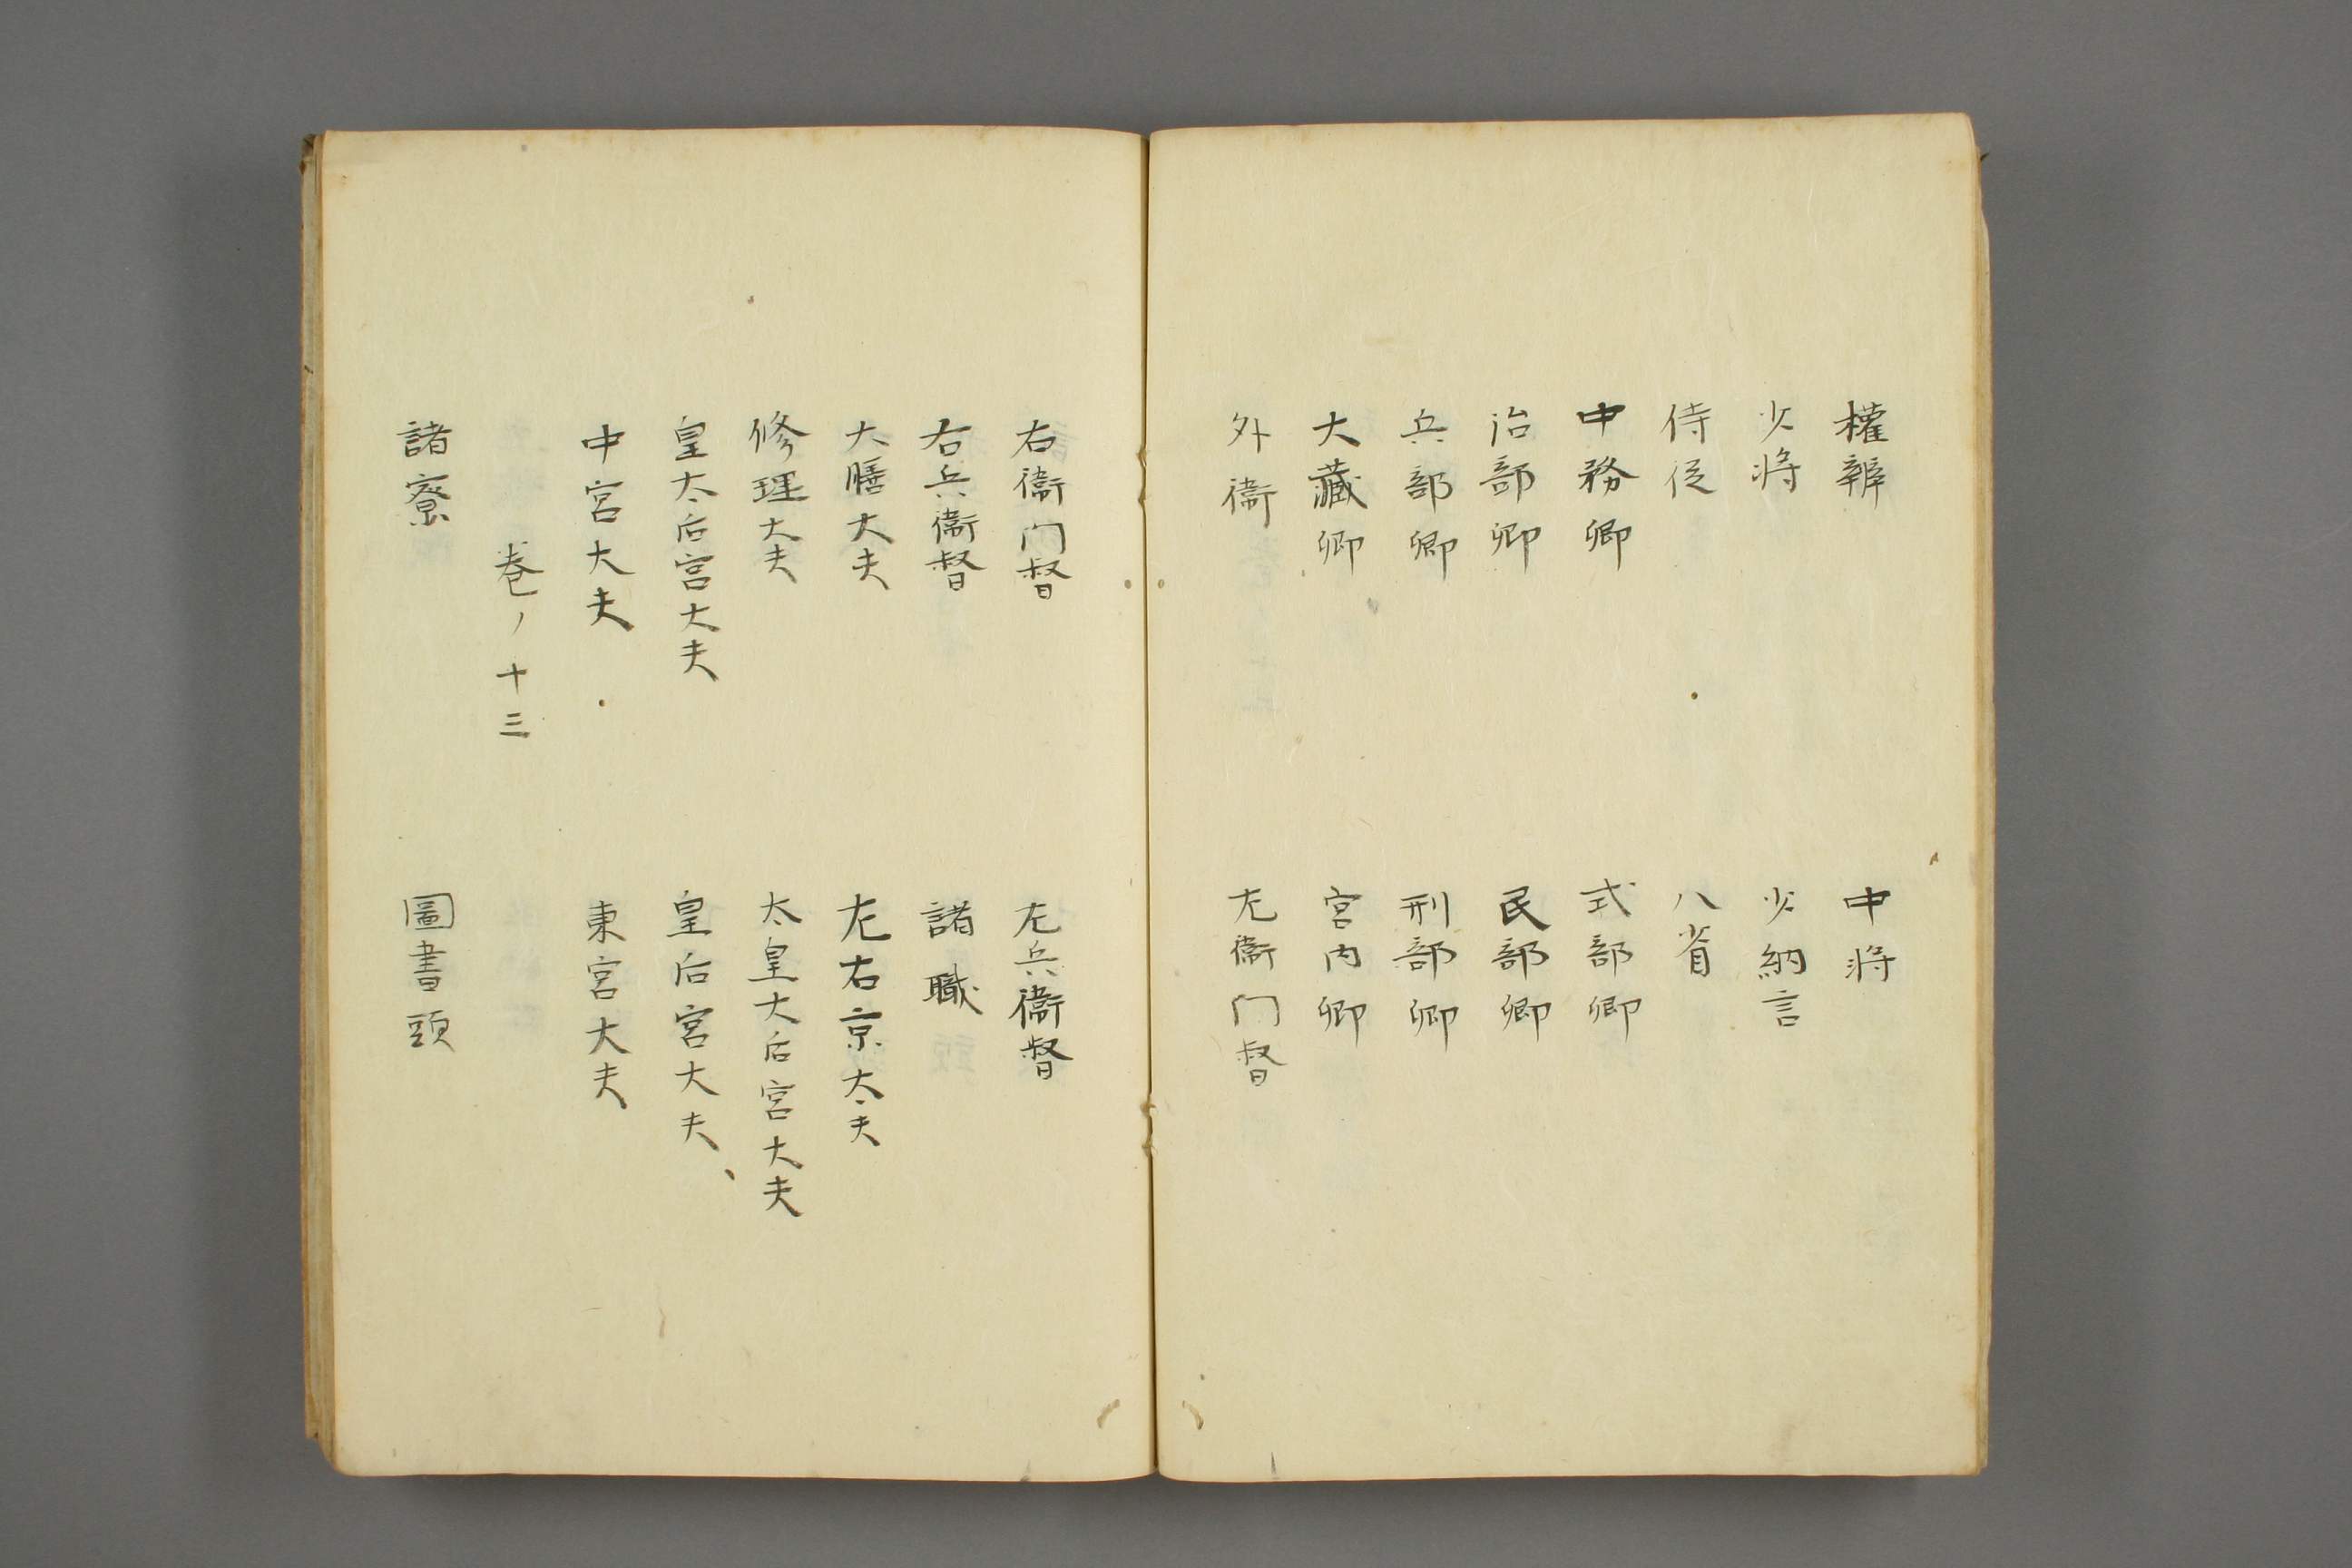 權辨　中将
少将　少納言
侍従　八省
中務卿　式部卿
治部卿　民部卿
兵部卿　刑部卿
大藏卿　宮内卿
外衞　左衞门督
右衞门督　左兵衞督
右兵衞督　諸職
大膳大夫　左右京大夫
修理大夫　太皇大后宮大夫
皇太后宮大夫　皇后宮大夫、
中宮大夫　東宮大夫
巻ノ十三
諸寮　圖書頭